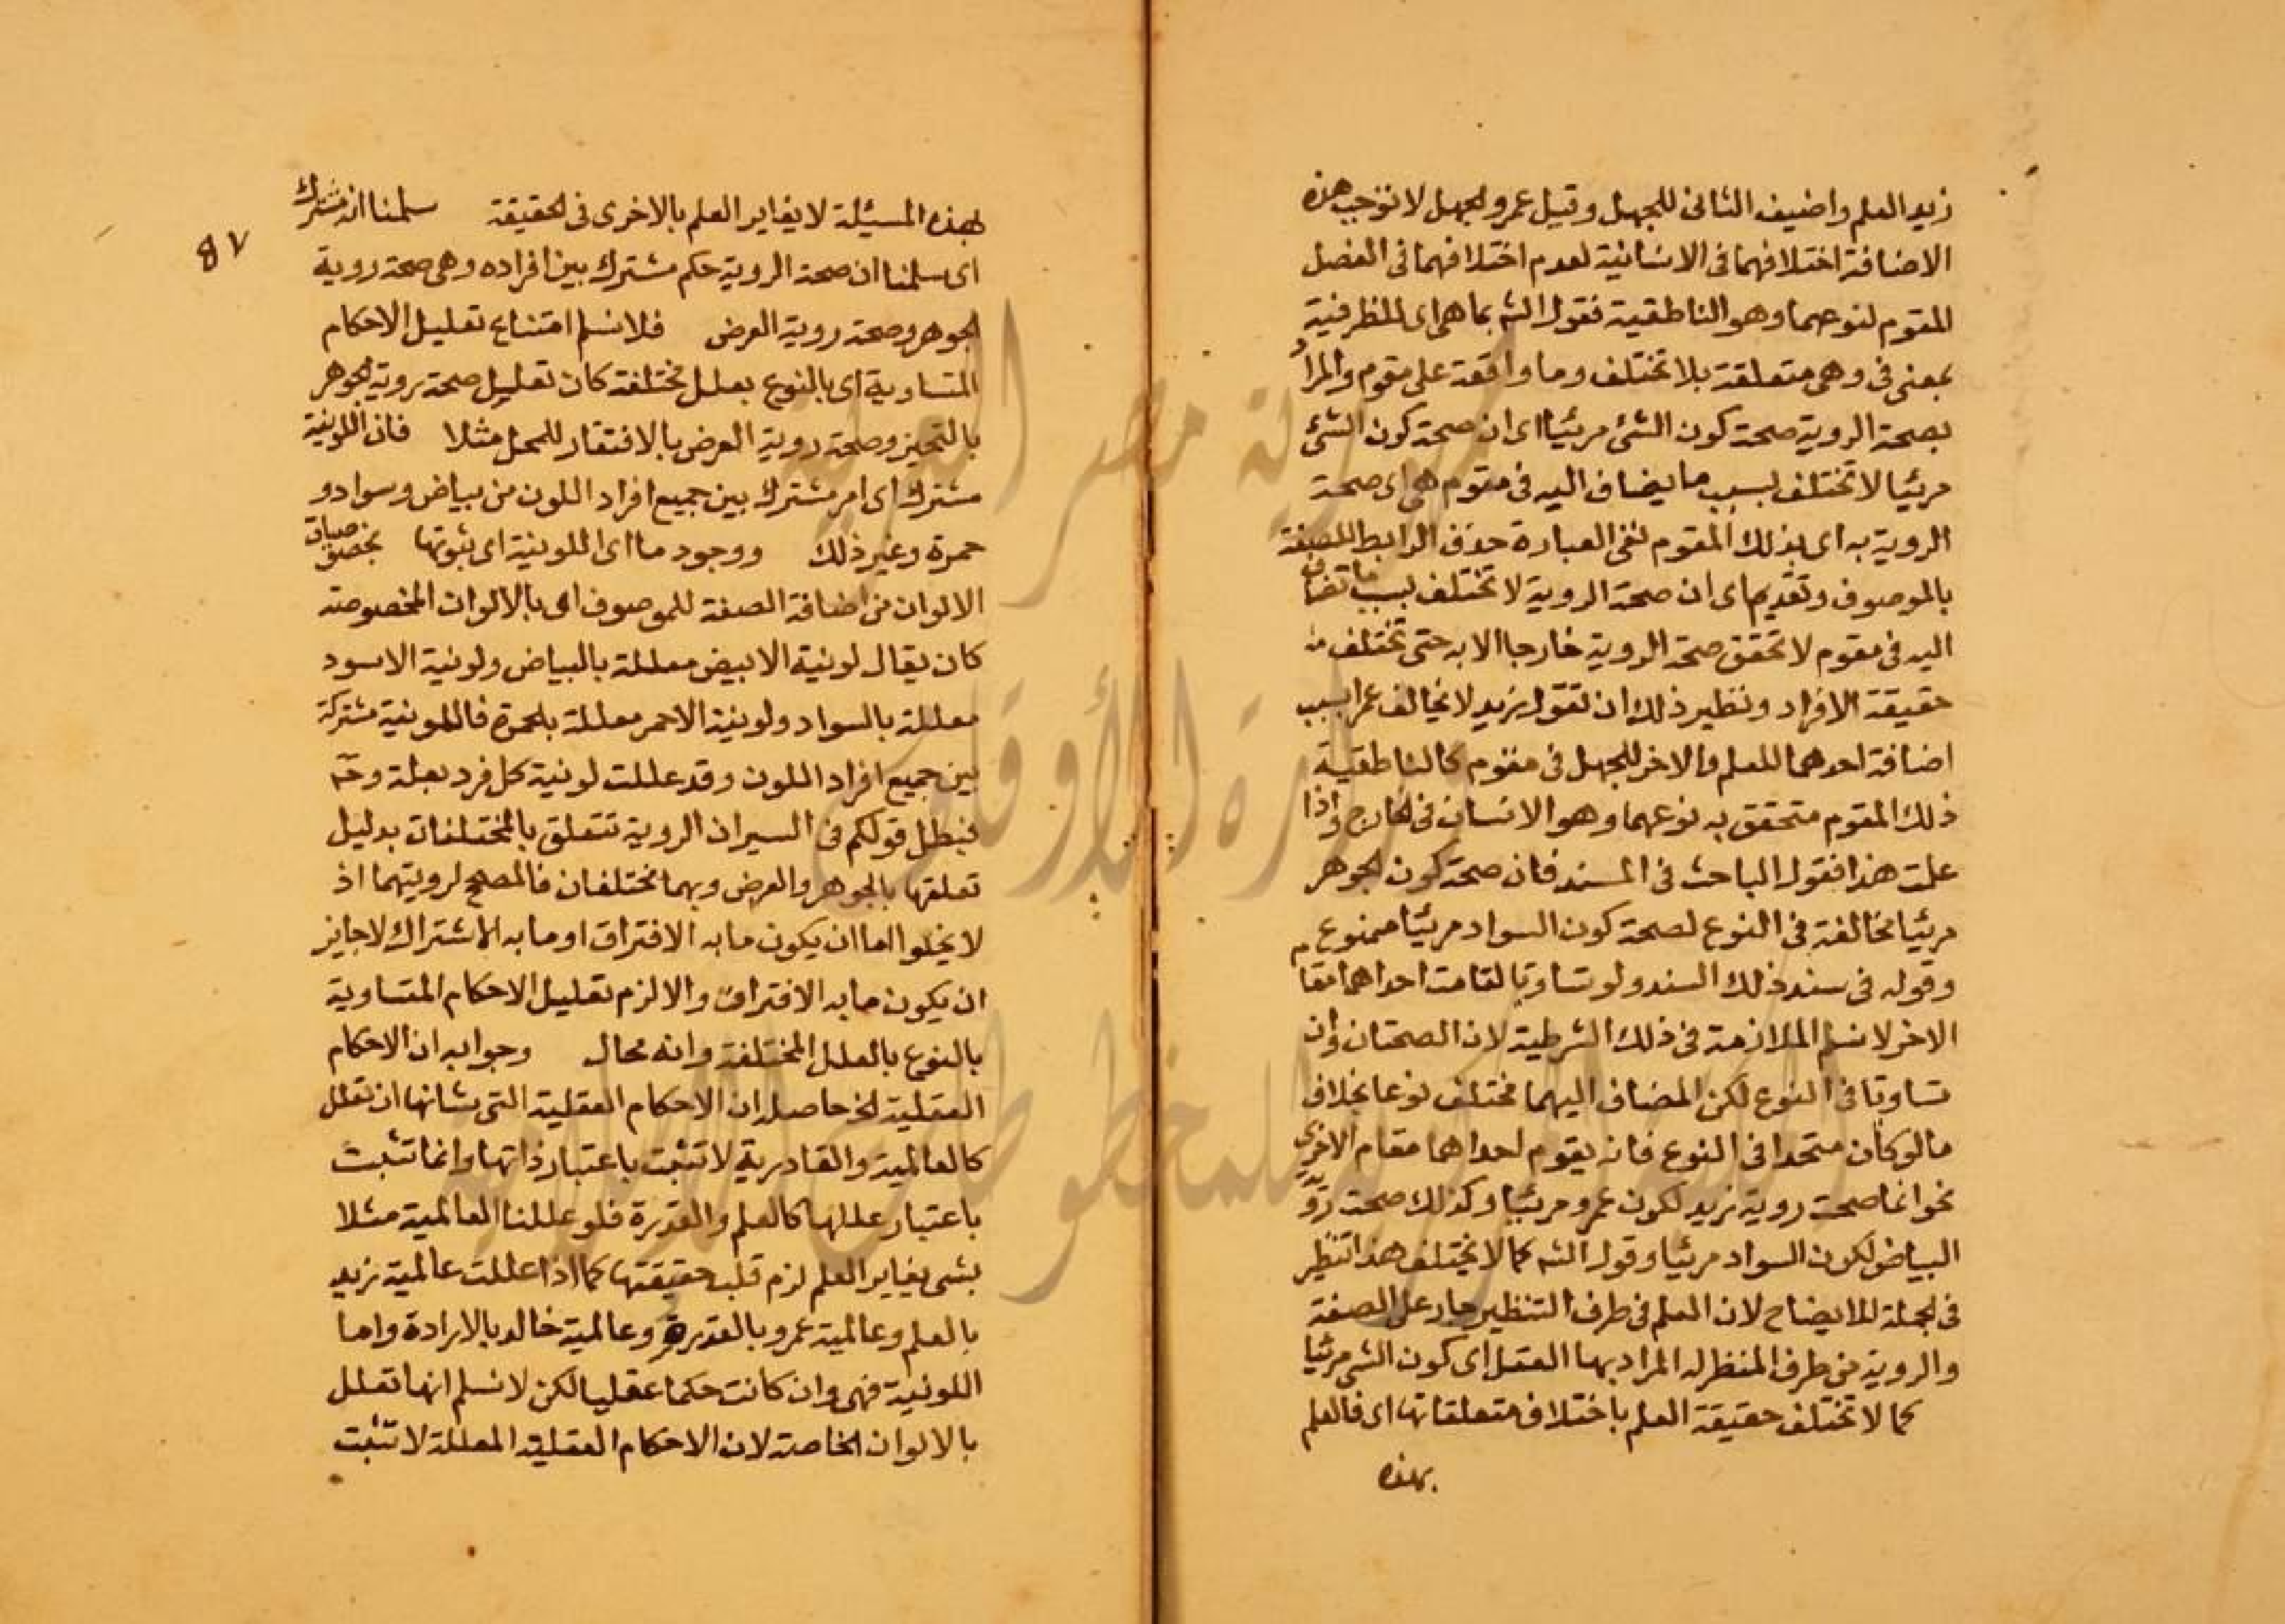 زيد العلم واضيف الثانى للجهل وقيل عمرو لجهل لا توجب هذه
الاضافة اختلافهما فى الانسانية لعدم اختلافهما فى الفصل
المقوم لنوعهما وهو الناطقية فقول الشم بما هى اى للظرفية
بمعنى فى وهى متعلقة بلا تختلف وما واقعة على مقوم والمراد
بصحة الروية صحة كون الشئ مرئيا اى ان صحة كون الشئ
مرئيا لا تختلف بسبب ما يضاف اليه فى مقوم هى اى صحة
الروية به اى بذلك المقوم ففى العبارة حذف الرابط للصفة
بالموصوف وتقديم اى ان صحة الروية لا تختلف بسبب ما تضاف
اليه فى مقوم لا تحقق صحة الروية خارجا الا به حتى تختلف
حقيقة الافراد ونظير ذلك ان تقول زيد لا يخالف عمرا بسبب
اضافة احدهما للعلم والاخر للجهل فى مقوم كالناطقية
ذلك المقوم متحقق به نوعهما وهو الانسان فى الخارج واذا
علمت هذا فقول الباحث فى السند فان صحة كون لجوهر
مرئيا مخالفة فى النوع لصحة كون السواد مرئيا ممنوع
وقوله فى سند ذلك السند ولو تساوتا لقامت احداهما مقام
الاخر لا نسلم الملازمة فى ذلك الشرطية لان الصحتان وان
تساوتا فى النوع لكن المضاف اليهما مختلف نوعا بخلاف
ما لو كان متحدا فى النوع فانه يقوم احداهما مقام الاخرى
نحو انما صحت روية زيد لكون عمرو مرئيا وكذلك صحت روية
البياض لكون السواد مرئيا وقول الشم كما لا يختلف هذا تنظير
فى لجملة للايضاح لان العلم فى طرف التنظير جار على الصفة
والروية فى طرف المنظر له المراد بها العقل اى كون الشى مرئيا
كما لا تختلف حقيقة العلم باختلاف متعلقاتها اى فالعلم
بهذه
٨٧
بهذه المسئلة لا يغاير العلم بالاخرى فى لحقيقة سلمنا انه مشترك
اى سلمنا ان صحة الروية حكم مشترك بين افراده وهى صحة روية
لجوهر وصحة روية العرض فلا نسلم امتناع تعليل الاحكام
المتساوية اى بالنوع بعلل مختلفة كان تعليل صحة روية لجوهر
بالتحيز وصحة روية العرض بالافتقار للمحل مثلا فان اللونية
مشترك اى امر مشترك بين جميع افراد اللون من بياض وسواد و
حمرة وغير ذلك ووجود ما اى اللونية اى ثبوتها بخصوصيات
الالوان من اضافة الصفة للموصوف اى بالالوان المخصوصة
كان يقال لونية الابيض معللة بالبياض ولونية الاسود
معللة بالسواد ولونية الاحمر معللة بلحمرة فاللونية مشتركة
بين جميع افراد اللون وقد عللت لونية كل فرد بعلة وح
فبطل قولكم فى السير ان الروية تتعلق بالمختلفات بدليل
تعلقها بالجوهر والعرض وبهما مختلفان فالمصحح لرويتهما اذ
لا يخلوا اما ان يكون ما به الافتراق او ما به الاشتراك لا جايز
ان يكون ما به الافتراق والا لزم تعليل الاحكام المتساوية
بالنوع بالعلل المختلفة وانه محال وجوابه ان الاحكام
العقلية لخ حاصله ان الاحكام العقلية التى بشانها ان تعلل
كالعالمية والقادرية لا تثبت باعتبار ذاتها وانما تثبت
باعتبار عللها كالعلم والقدرة فلو عللنا العالمية مثلا
بشى يغاير العلم لزم قلب حقيقتها كما اذا عللت عالمية زيد
بالعلم وعالمية عمرو بالقدرة وعالمية خالد بالارادة واما
اللونية فهى وان كانت حكما عقليا لكن لا نسلم انها تعلل
بالالوان الخاصة لان الاحكام العقلية المعللة لا تثبت